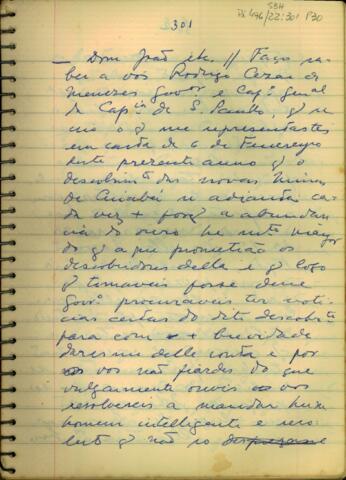 SBH
Pi 476/22:301 P30
301
— Dom João etc. // Faço sa-
ber a vós Rodrigo Cezar de
Menezes Govor e Capº genal
da Capia de S. Paulo, q vi
o q me representastes
em carta de 6 de Fevereyro
deste prezente anno q o
descobrimto das novas minas
de Cuiabá se adianta ca-
da vez + porq a abundan
cia do ouro he mto mayor
do q a que prometião os
descobridores della e q logo
q tomaveis posse desse
Govo procuraveis ter noti-
cias certas do dito descobrto
para com + brevidade
dares me delle conta e por
vos não fiardes do que
vulgarmente ouvis vos
resolvereis a mandar hum
homem intelligente e
q não só